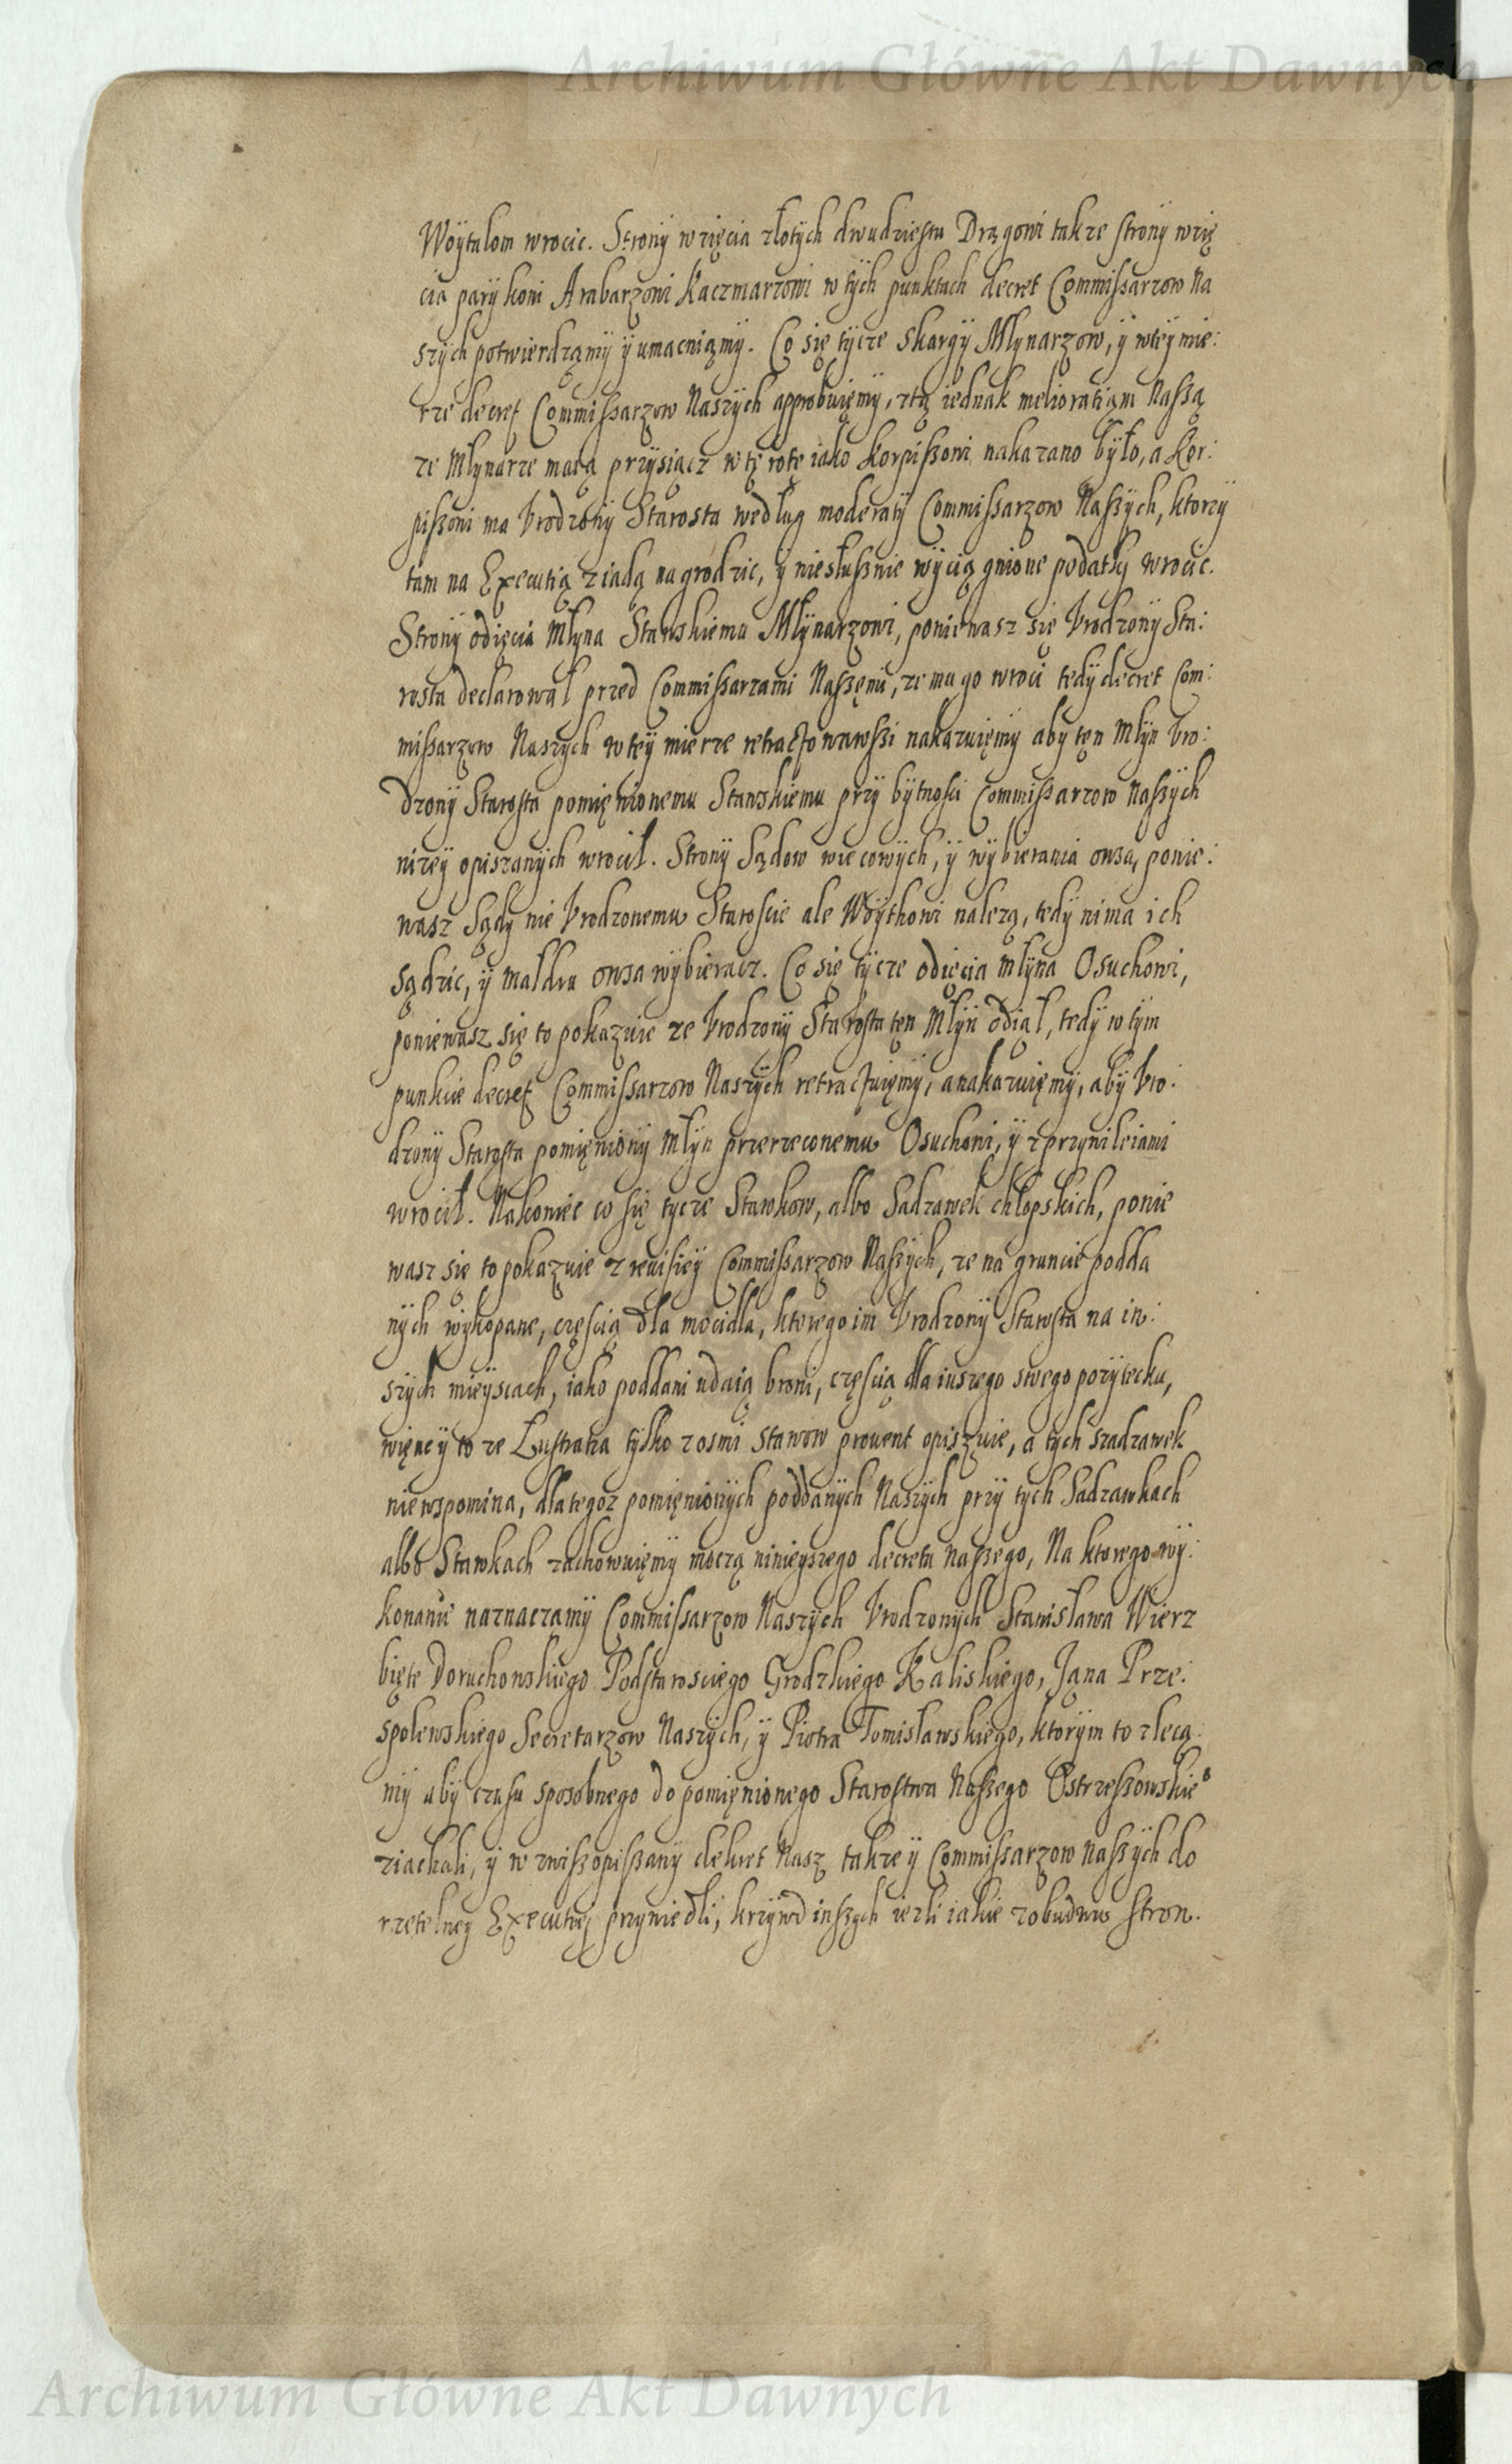 Archiwum Główne Akt Dawnych
Woytalom wrocic. Strony wzięcia złotych dwudziestu Drzgowi takze strony wzię
cia pary koni Arabarzowi Kaczmarzowi w tych punktach decret Commissarzow Na
szych potwierdzamy y umacniamy. Co się tycze skargy Młynarzow, y wtey mie:
rze decret Commissarzow Naszych approbuięmy, ztą iednak melioratiąm Nassą
ze Młynarze maią przysiącz w tę rotę iako Korpissowi nakazano było, a Kor:
pissowi ma Vrodzony Starosta według moderaty Commissarzow Naszych, ktorzy
tam na Executią ziadą nagrodzic, y niesłusznie wyciągnione podatky wrocic.
Strony odięcia Młyna Stawskiemu Młynarzowi, poniewasz się Vrodzony Sta:
rosta declarował przed Commissarzami Naszęmi, ze mu go wroci tedy decret Com:
missarzow Naszych w tey mierze retractowawszi nakazuięmy aby tęn Młyn Vro:
dzony Starosta pomięnionemu Stawskiemu przy bytnosci Commissarzow Naszych
nizey opiszanych wrocił. Strony Sądow wiecowych, y wybierania owsa, ponie:
wasz Sądy nie Vrodzonemu Staroscie ale Woythowi nalezą, tedy nima ich
sądzic, y małdra owsa wybieracz. Co się tycze odięcia młyna Osuchowi,
poniewasz się to pokazuie ze Vrodzony Starosta tęn Młyn odiął, tedy w tym
punkcie decret Commissarzow Naszych retractuięmy, a nakazuięmy, aby Vro:
dzony Starosta pomięniony Młyn przerzeconemu Osuchowi, y z przywileiami
wrocił. Nakoniec co się tycze Stawkow, albo Sadzawek chłopskich, ponie
wasz się to pokazuie z rewisiey Commissarzow Naszych, ze na gruncie podda
nych wykopane, częscią dla mocidła, ktorego im Vrodzony Starosta na in:
szych mieyscach, iako poddani udaią broni, częscią dla inszego swego pozytecku,
więncy to ze Lustratia tylko z osmi stawow prouent opiszuie, a tych szadzawek
niewspomina, dlategoz pomięnionych poddanych Naszych przy tych Sadzawkach
albo Stawkach zachowuięmy moczą ninieyszego decretu naszego, Na ktorego wy:
konanie naznaczamy Commissarzow Naszych Vrodzonych Stanisława Wierz
bięte Doruchowskiego Podstarosciego Grodzkiego Kaliskiego, Jana Prze:
spolewskiego Secretarzow Naszych, y Piotra Tomisławskiego, ktorym to zleca:
my aby czasu sposobnego do pomięnionego Starostwa Naszego Ostrzeszowskieo
ziachali, y w zwiszopiszany dekret Nasz takze y Commissarzow Naszych do
rzetelney Executiey przywiedli, krzywd inszych iezli iakie z obudwu stron.
Archiwum Główne Akt Dawnych